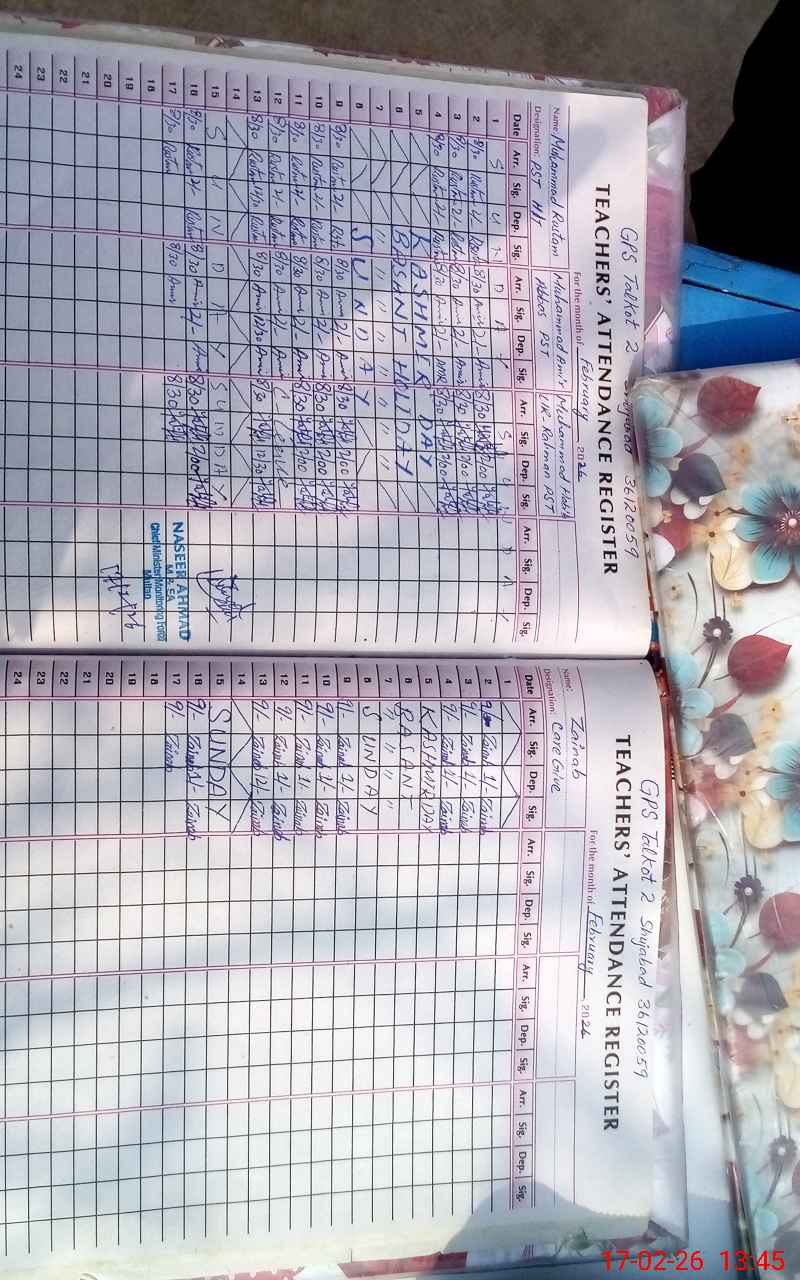 GPS Talkot 2 Shujabad 36120059
TEACHERS' ATTENDANCE REGISTER
For the month of February 2026
Name: Muhammad Rustam Muhammad Amir Muhammad Habib
Designation: PST H/T Abbas PST UR Rahman PST
Date Arr. Sig. Dep. Sig. Arr. Sig. Dep. Sig. Arr. Sig. Dep. Sig. Arr. Sig. Dep. Sig.
1 S U N D A Y S U N D A Y
2 8/30 Rustam 2/- 8/30 Amir 2/- Amir 8/30 2/00
3 8/30 Rustam 2/- 8/30 Amir 2/- Amir 8/30 2/00
4 8/30 Rustam 2/- Rustam 8/30 Amir 2/- Amir 8/30 2/00
5 KASHMIR DAY
6 BASANT HOLIDAY
7 " " " " "
8 SUNDAY
9 8/30 Rustam 2/- 8/30 Amir 2/- Amir 8/30 2/00
10 8/30 Rustam 2/- Rustam 8/30 Amir 2/- Amir 8/30 2/00
11 8/30 Rustam 2/- Rustam 8/30 Amir 2/- Amir 8/30 2/00
12 8/30 Rustam 2/- Rustam 8/30 Amir 2/- Amir
13 8/30 Rustam 12/30 Rustam 8/30 Amir 12/30 Amir 8/30 12/30
14
15 S U N D A Y S U N D A Y
16 8/30 Rustam 2/- Rustam 8/30 Amir 2/- Amir 8/30 2/00
17 8/30 Rustam 8/30 Amir 8/30
18
19
20
21
22
23
24
NASEER AHMAD
M & EA
Chief Minister Monitoring Force
Multan
GPS Talkot 2 Shujabad 36120059
TEACHERS' ATTENDANCE REGISTER
For the month of February 2026
Name: Zainab
Designation: Care Give
Date Arr. Sig. Dep. Sig. Arr. Sig. Dep. Sig. Arr. Sig. Dep. Sig. Arr. Sig. Dep. Sig.
1
2 9/- Zainab 1/- Zainab
3 9/- Zainab 1/- Zainab
4 9/- Zainab 1/- Zainab
5 KASHMIR DAY
6 BASANT
7 " " " "
8 SUNDAY
9 9/- Zainab 1/- Zainab
10 9/- Zainab 1/- Zainab
11 9/- Zainab 1/- Zainab
12 9/- Zainab 1/- Zainab
13 9/- Zainab 12/- Zainab
14
15 SUNDAY
16 9/- Zainab 1/- Zainab
17 9/- Zainab
18
19
20
21
22
23
24
17-02-26 13:45